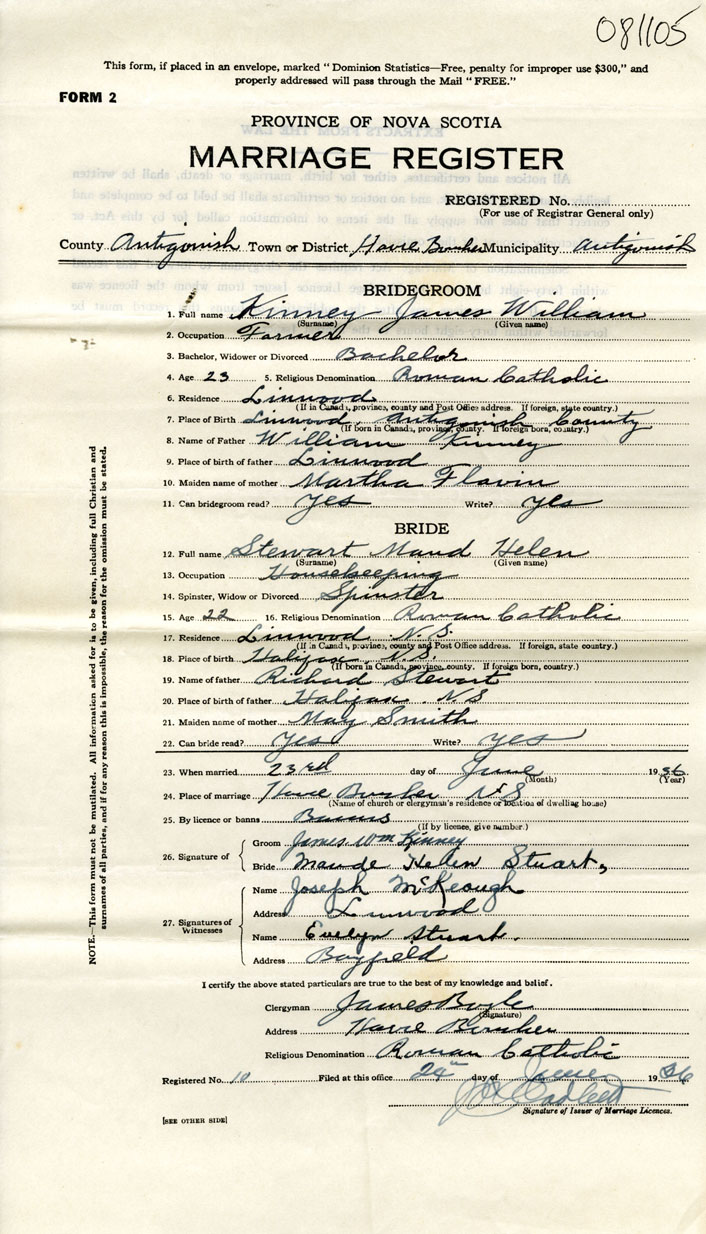 081105
This form, if placed in an envelope, marked "Dominion Statistics—Free, penalty for improper use $300," and
properly addressed will pass through the Mail "FREE."
FORM 2
PROVINCE OF NOVA SCOTIA
MARRIAGE REGISTER
REGISTERED No.
(For use of Registrar General only)
County Antigonish Town or District Havre Boucher Municipality Antigonish
BRIDEGROOM
1. Full name Kinney James William
(Surname) (Given name)
2. Occupation Farmer
3. Bachelor, Widower or Divorced Bachelor
4. Age 23 5. Religious Denomination Roman Catholic
6. Residence Linwood
(If in Canada, province, county and Post Office address. If foreign, state country.)
7. Place of Birth Linwood Antigonish County
(If born in Canada, province, county. If foreign born, country.)
8. Name of Father William Kinney
9. Place of birth of father Linwood
10. Maiden name of mother Martha Flavin
11. Can bridegroom read? Yes Write? Yes
BRIDE
12. Full name Stewart Maud Helen
(Surname) (Given name)
13. Occupation Housekeeping
14. Spinster, Widow or Divorced Spinster
15. Age 22 16. Religious Denomination Roman Catholic
17. Residence Linwood N.S.
(If in Canada, province, county and Post Office address. If foreign, state country.)
18. Place of birth Halifax N.S.
(If born in Canada, province, county. If foreign born, country.)
19. Name of father Richard Stewart
20. Place of birth of father Halifax N.S
21. Maiden name of mother May Smith
22. Can bride read? Yes Write? Yes
23. When married 23rd day of June 1936
(Month) (Year)
24. Place of marriage Havre Boucher N.S
(Name of church or clergyman's residence or location of dwelling house)
25. By licence or banns Banns
(If by licence, give number.)
26. Signature of
Groom James Wm Kinney
Bride Maude Helen Stuart,
27. Signatures of Witnesses
Name Joseph McKeough
Address Linwood
Name Evelyn Stuart.
Address Bayfield
I certify the above stated particulars are true to the best of my knowledge and belief.
Clergyman James Boyle
(Signature)
Address Havre Boucher
Religious Denomination Roman Catholic
Registered No. 10 Filed at this office 24 day of June 1936
Signature of Issuer of Marriage Licences.
[SEE OTHER SIDE]
NOTE.—This form must not be mutilated. All information asked for is to be given, including full Christian and
surnames of all parties, and if for any reason this is impossible, the reason for the omission must be stated.